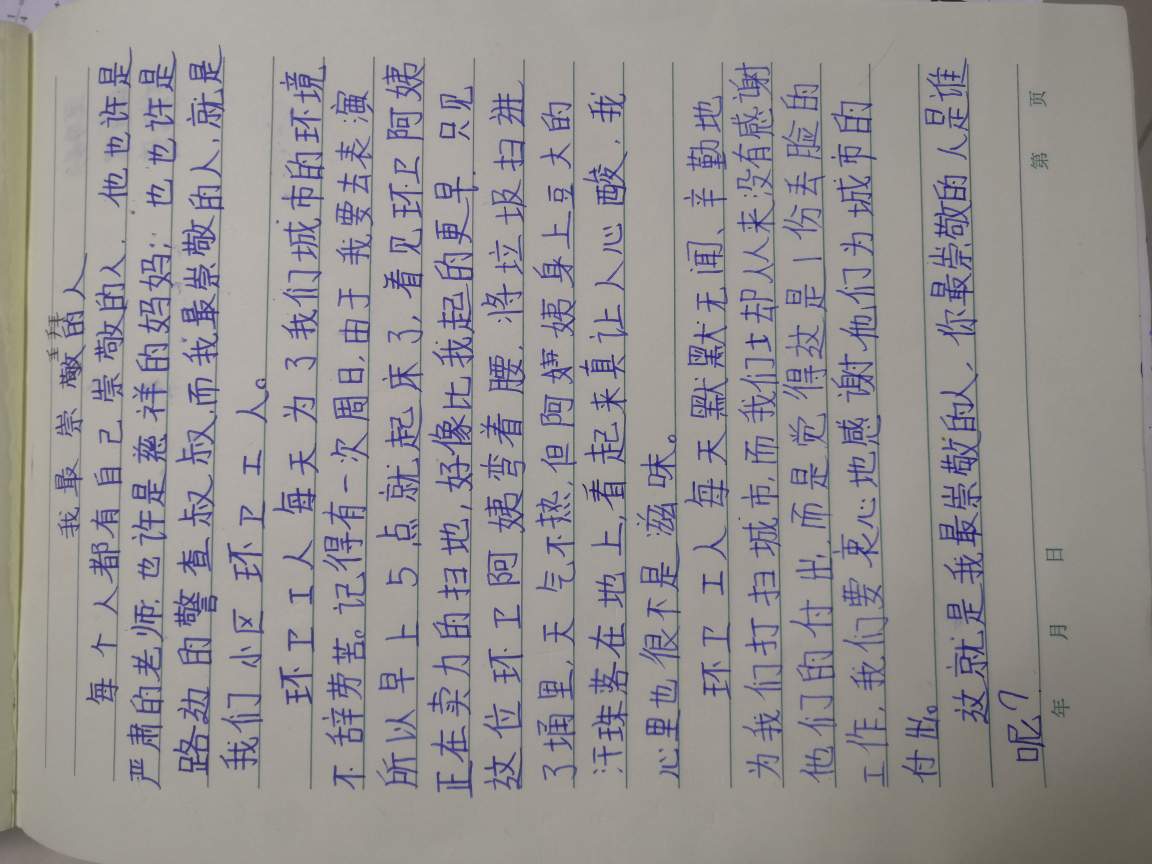 我最崇敬的人
拜
每个人都有自己崇敬的人，他也许是
严肃的老师；也许是慈祥的妈妈；也也许是
路边的警查叔叔，而我最崇敬的人，就是
我们小区环卫工人。
环卫工人每天为了我们城市的环境，
不辞劳苦。记得有一次周日，由于我要去表演
所以早上5点就起床了，看见环卫阿姨
正在卖力的扫地，好像比我起的更早，只见
这位环卫阿姨弯着腰，将垃圾扫进
了埇里，天气不热，但阿姨身上豆大的
汗珠落在地上，看起来真让人心酸，我
心里也很不是滋味。
环卫工人每天默默无闻、辛勤地
为我们打扫城市，而我们却从来没有感谢
他们的付出，而是觉得这是1份丢脸的
工作，我们要衷心地感谢他们为城市的
付出。
这就是我最崇敬的人，你最崇敬的人是谁
呢？
年 月 日 第 页